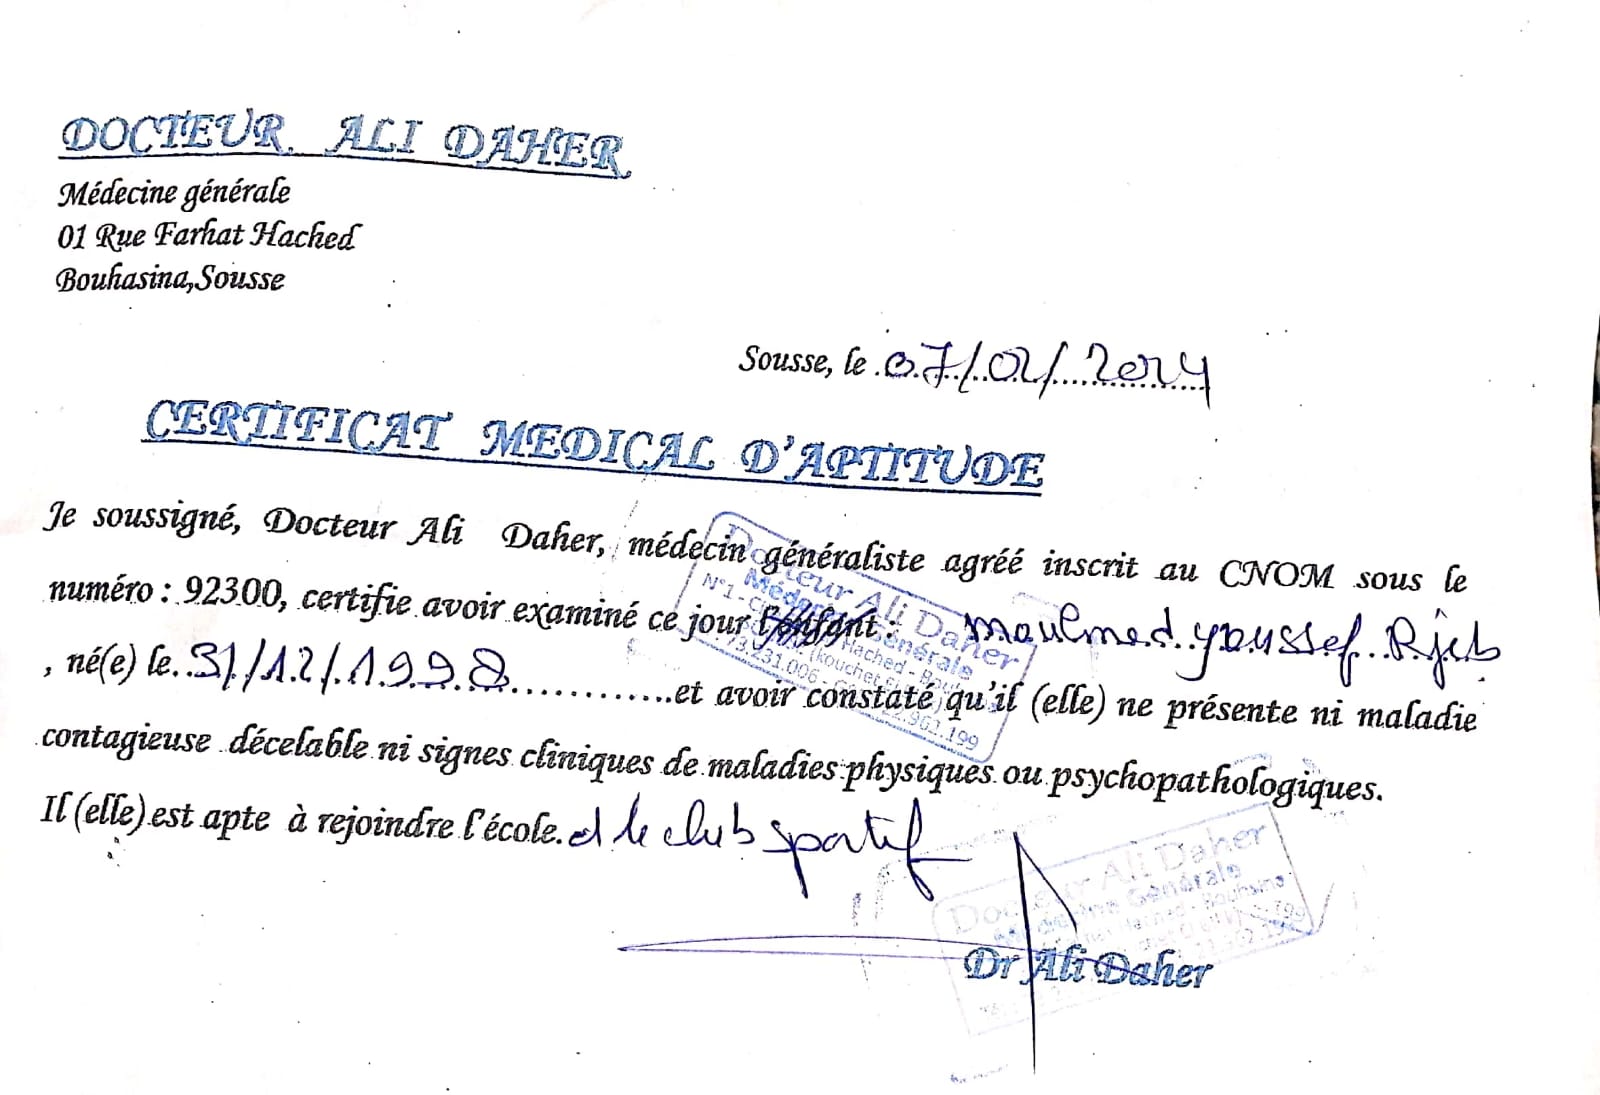 DOCTEUR. ALI DAHER
Médecine générale
01 Rue Farhat Hached
Bouhasina,Sousse
Sousse, le 07/02/2024
CERTIFICAT MEDICAL D'APTITUDE
Je soussigné, Docteur Ali Daher, médecin généraliste agréé inscrit au CNOM sous le
numéro : 92300, certifie avoir examiné ce jour l'enfant : Mouhmed Youssef Rjeb
, né(e) le 31/12/1998 et avoir constaté qu'il (elle) ne présente ni maladie
contagieuse décelable ni signes cliniques de maladies physiques ou psychopathologiques.
Il (elle) est apte à rejoindre l'école. et le club sportif
Docteur Ali Daher
Médecine Générale
Hached
73.231.006
Docteur Ali Daher
Médecine Générale
Dr Ali Daher